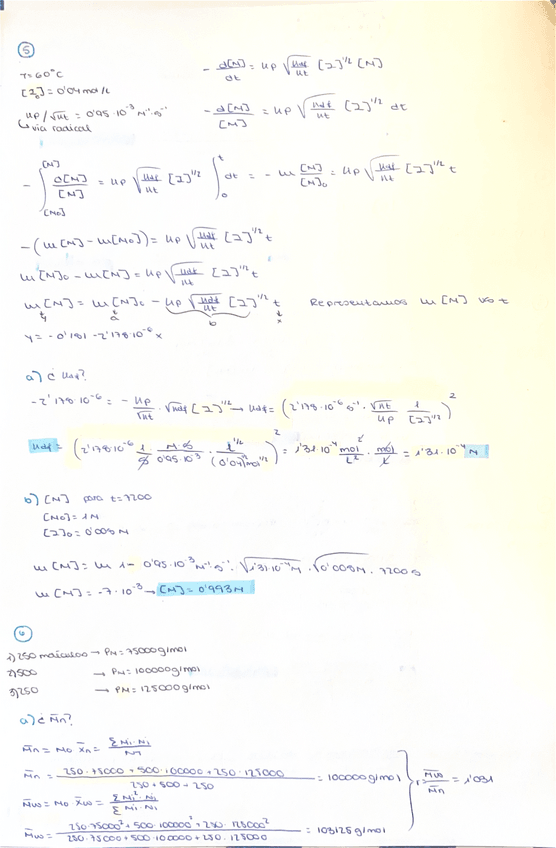 ⑤
T=60ºC
[I₀] = 0'04 mol/L
kp/√kt = 0'95·10⁻³ M⁻¹·s⁻¹
↳ via radical
- d[M]/dt = kp √(kdf/kt) [I]^1/2 [M]
- d[M]/[M] = kp √(kdf/kt) [I]^1/2 dt
- ∫_[M₀]^[M] d[M]/[M] = kp √(kdf/kt) [I]^1/2 ∫₀^t dt = - ln [M]/[M]₀ = kp √(kdf/kt) [I]^1/2 t
-(ln[M] - ln[M₀]) = kp √(kdf/kt) [I]^1/2 t
ln[M]₀ - ln[M] = kp √(kdf/kt) [I]^1/2 t
ln[M] = ln[M]₀ - kp √(kdf/kt) [I]^1/2 t Representamos ln[M] vs t
y a b x
y = -0'181 - 2'178·10⁻⁶ x
a) ¿ kdf?
-2'178·10⁻⁶ = - kp/√kt · √kdf [I]^1/2 → kdf = (2'178·10⁻⁶ s⁻¹ · √kt/kp · 1/[I]^1/2)²
kdf = (2'178·10⁻⁶ 1/s · M·s/0'95·10⁻³ · L^1/2/(0'04)^1/2 mol^1/2)² = 1'31·10⁻⁴ mol²/L² · mol/L = 1'31·10⁻⁴ M
b) [M] para t=7200
[M₀] = 1M
[I]₀ = 0'008 M
ln[M] = ln 1 - 0'95·10⁻³ M⁻¹·s⁻¹ · √1'31·10⁻⁴ M · √0'008M · 7200 s
ln[M] = -7·10⁻³ → [M] = 0'993M
⑥
1) 250 moléculas → PM = 75000 g/mol
2) 500 → PM = 100000 g/mol
3) 250 → PM = 125000 g/mol
a) ¿ M̄n?
M̄n = M₀ X̄n = Σ Mi·Ni/Nn
M̄n = (250·75000 + 500·100000 + 250·125000)/(250+500+250) = 100000 g/mol
M̄w = M₀ X̄w = Σ Mi²·Ni/Σ Mi·Ni
M̄w = (250·75000² + 500·100000² + 250·125000²)/(250·75000 + 500·100000 + 250·125000) = 103125 g/mol
r = M̄w/M̄n = 1'031